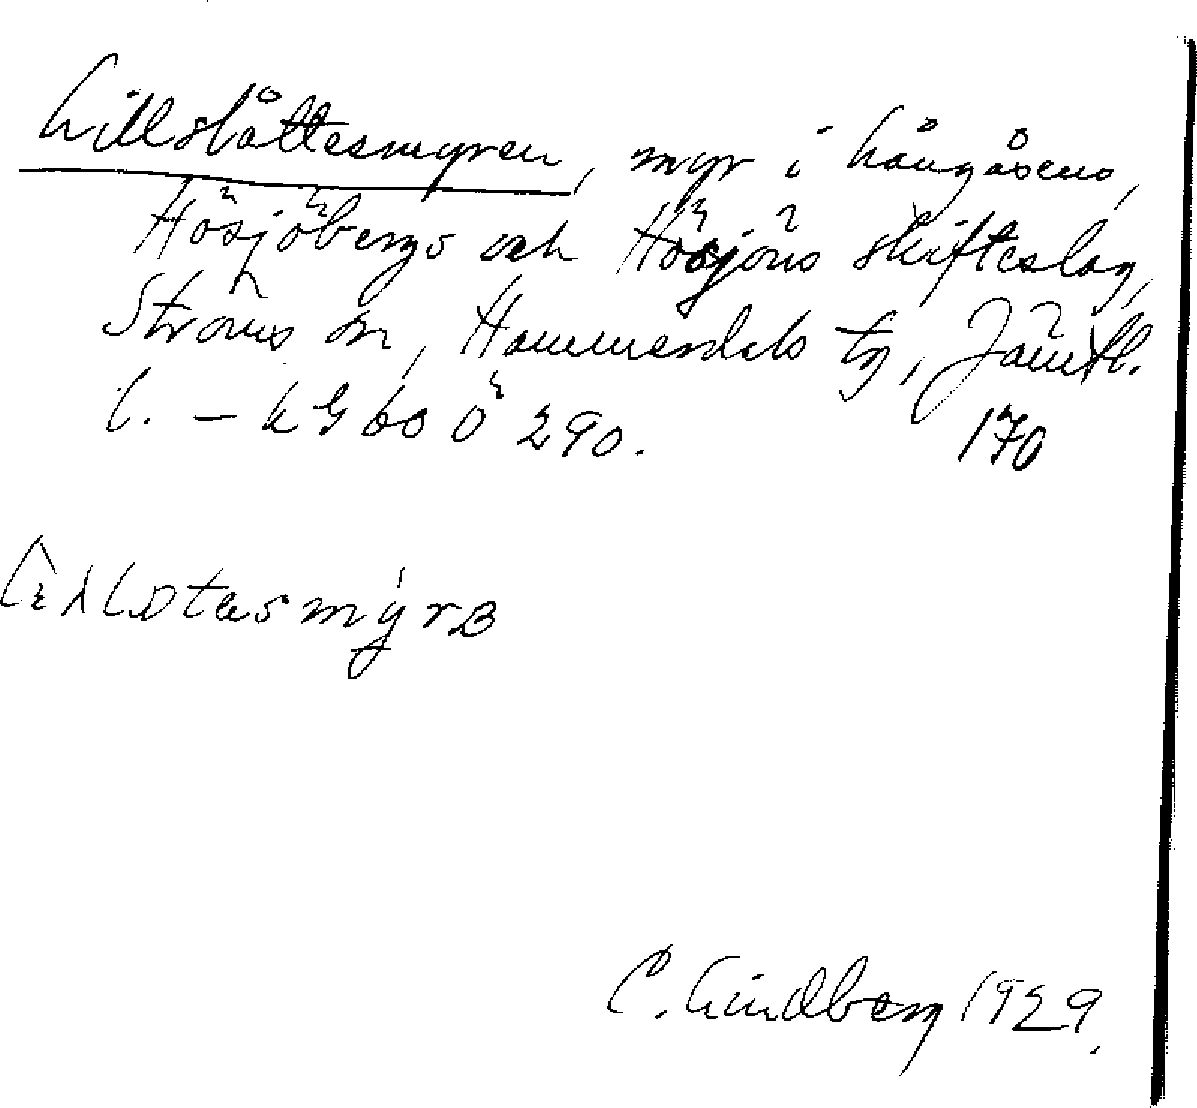 Lillslåttesmyren, myr i Långåsens,
Hösjöbergs och Hösjöns skifteslag,
Ströms sn, Hammerdals tg, Jämtl.
l. – k G bo Ö 290. 170
C. Lindberg 1929.